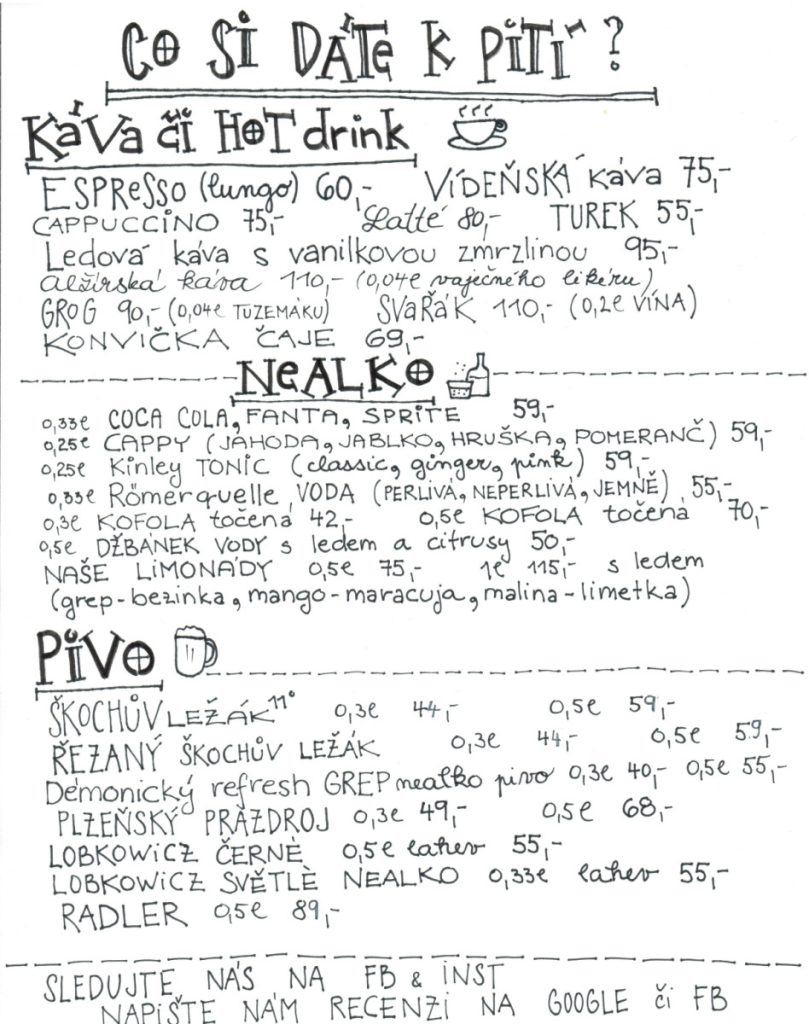 CO SI DÁTE K PITÍ?
KÁVA ČI HOT drink
ESPRESSO (lungo) 60,- VÍDEŇSKÁ káva 75,-
CAPPUCCINO 75,- Latté 80,- TUREK 55,-
Ledová káva s vanilkovou zmrzlinou 95,-
alžírská káva 110,- (0,04l vaječného likéru)
GROG 90,- (0,04l TUZEMÁKU) SVAŘÁK 110,- (0,2l VÍNA)
KONVIČKA ČAJE 69,-
NeALKO
0,33l COCA COLA, FANTA, SPRITE 59,-
0,25l CAPPY (JAHODA, JABLKO, HRUŠKA, POMERANČ) 59,-
0,25l Kinley TONIC (classic, ginger, pink) 59,-
0,33l Römerquelle VODA (PERLIVÁ, NEPERLIVÁ, JEMNĚ) 55,-
0,3l KOFOLA točená 42,- 0,5l KOFOLA točená 70,-
0,5l DŽBÁNEK VODY s ledem a citrusy 50,-
NAŠE LIMONÁDY 0,5l 75,- 1l 115,- s ledem
(grep-bezinka, mango-maracuja, malina-limetka)
PIVO
ŠKOCHŮV LEŽÁK 11° 0,3l 44,- 0,5l 59,-
ŘEZANÝ ŠKOCHŮV LEŽÁK 0,3l 44,- 0,5l 59,-
Démonický refresh GREP nealko pivo 0,3l 40,- 0,5l 55,-
PLZEŇSKÝ PRAZDROJ 0,3l 49,- 0,5l 68,-
LOBKOWICZ ČERNÉ 0,5l lahev 55,-
LOBKOWICZ SVĚTLÉ NEALKO 0,33l lahev 55,-
RADLER 0,5l 89,-
SLEDUJTE NÁS NA FB & INST
NAPIŠTE NÁM RECENZI NA GOOGLE či FB